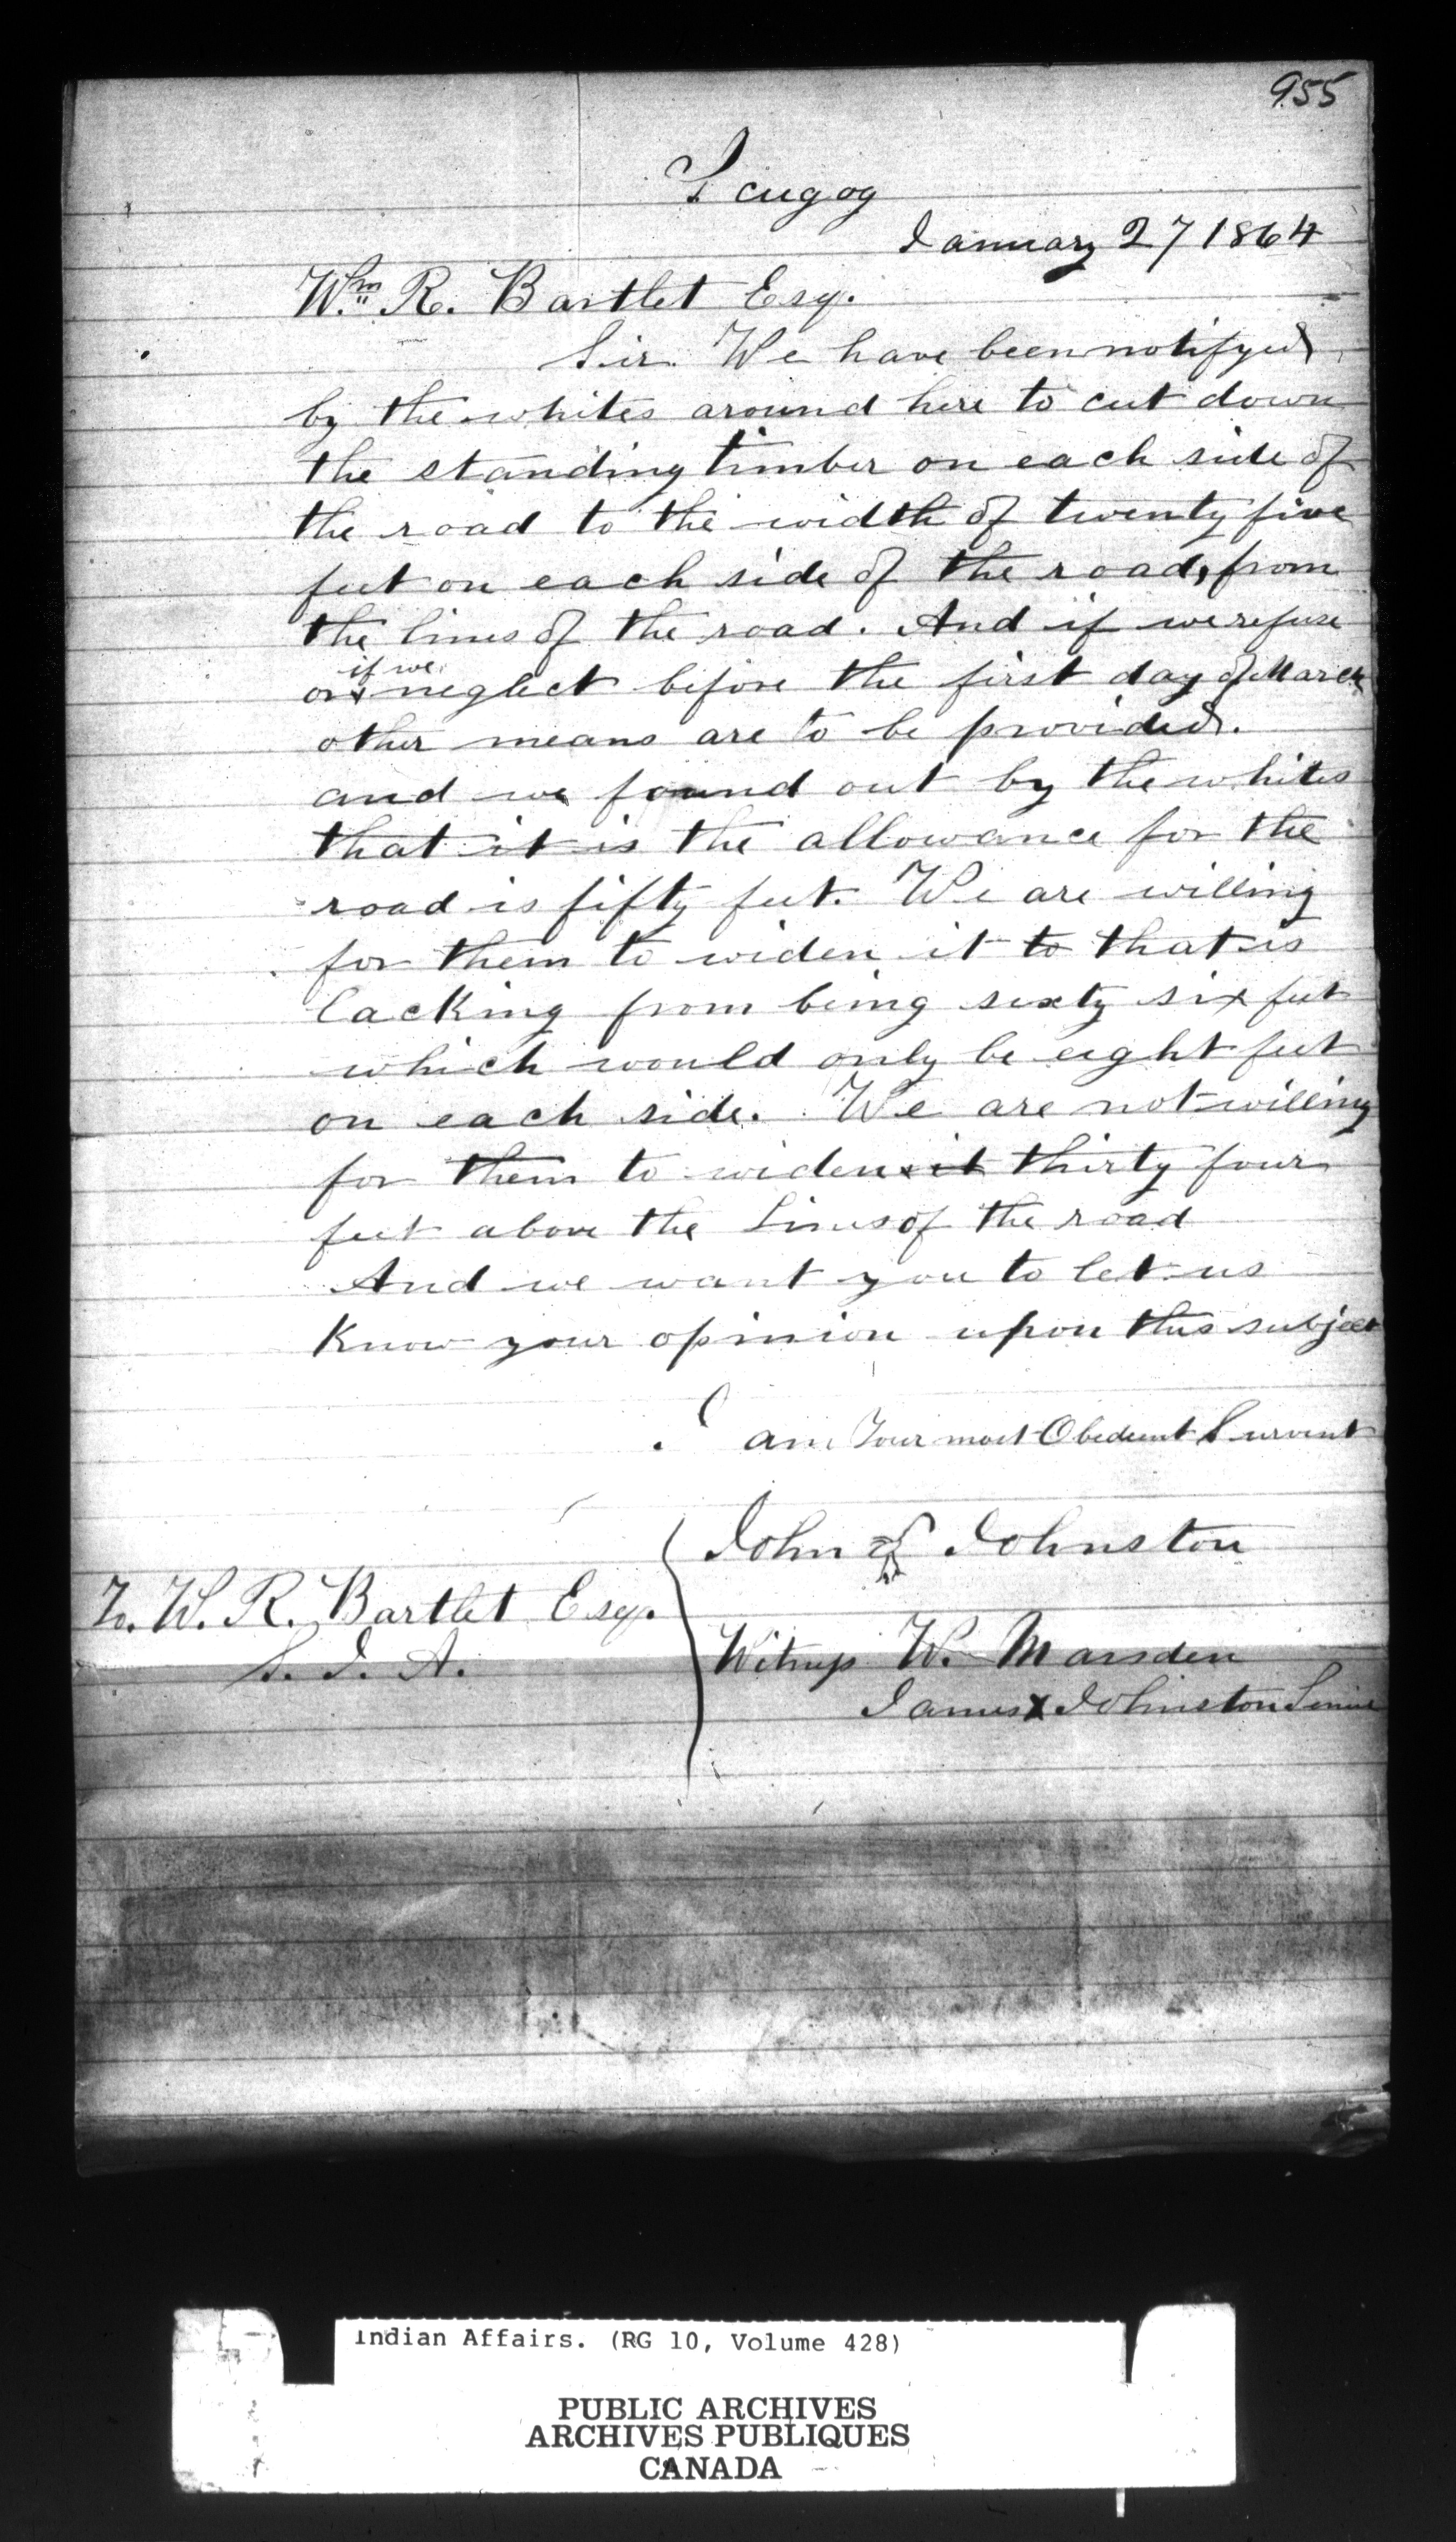 955
Scugog
January 27 1864
Wm. R. Bartlet Esq.
Sir. We have been notifyed
by the whites around here to cut down
the standing timber on each side of
the road to the width of twenty five
feet on each side of the road, from
the lines of the road. And if we refuse
if we
or x neglect before the first day of March
other means are to be provided.
and we found out by the whites
that it is the allowance for the
road is fifty feet. We are willing
for them to widen it to that is
lacking from being sixty six feet
which would only be eight feet
on each side. We are not willing
for them to widen it thirty four
feet above the Lines of the road
And we want you to let us
Know your opinion upon this subject
I am Your most Obedient Survent
John Johnston
To. W. R. Bartlet Esq.
S. I. A.
Witness W. Marsden
James X Johnston Senior
Indian Affairs. (RG 10, Volume 428)
PUBLIC ARCHIVES
ARCHIVES PUBLIQUES
CANADA